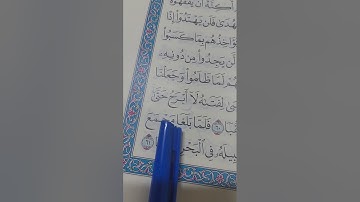 أَكِنَّةً أَن يَفْقَهُوهُ
هُدَىٰ فَلَن يَهْتَدُوٓا۟ إِذًا
ؤَاخِذُهُم بِمَا كَسَبُوا۟
لَّن يَجِدُوا۟ مِن دُونِهِۦ
هُمْ لَمَّا ظَلَمُوا۟ وَجَعَلْنَا
سَىٰ لِفَتَىٰهُ لَآ أَبْرَحُ حَتَّىٰٓ
بًا ٦٠ فَلَمَّا بَلَغَا مَجْمَعَ
بِيلَهُۥ فِى ٱلْبَحْرِ ٦١